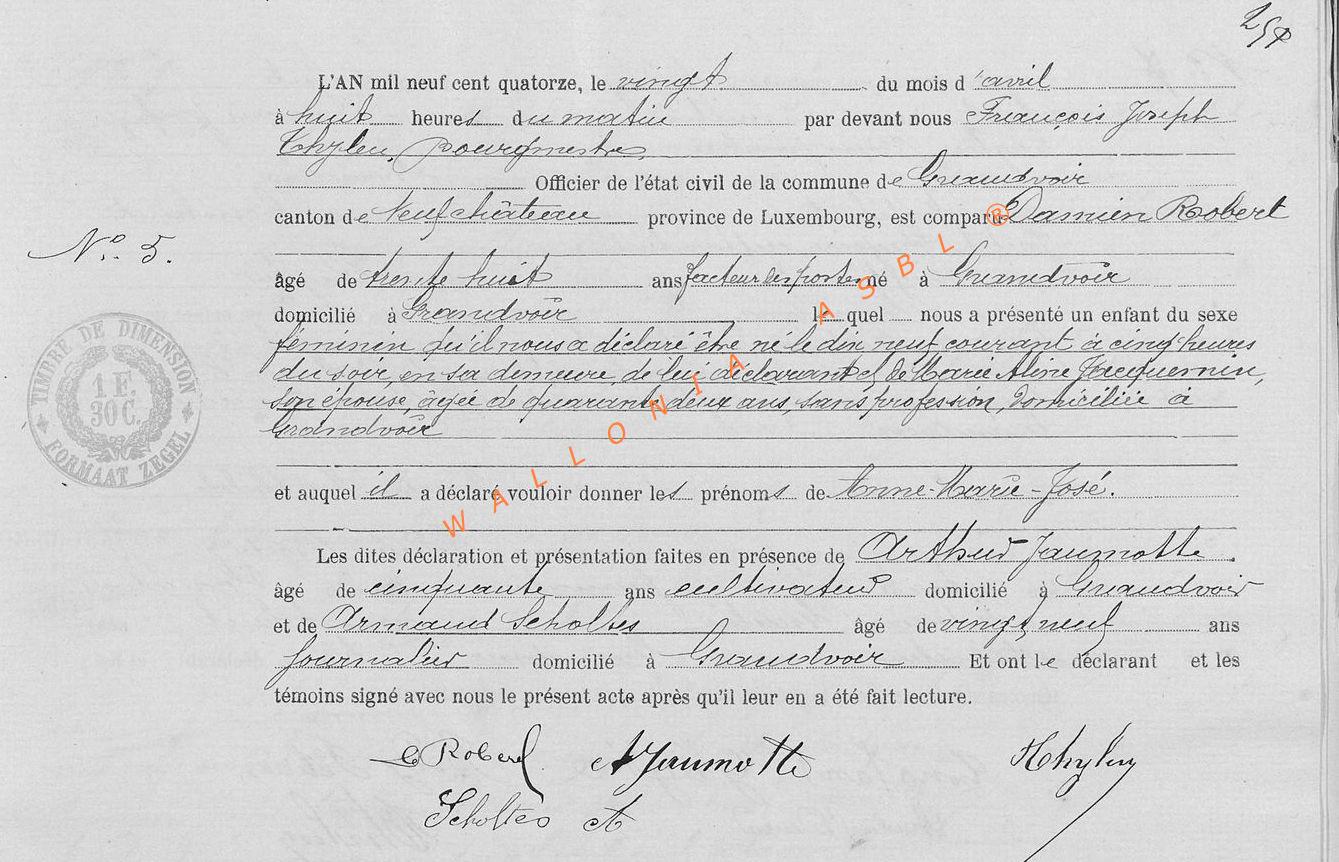 L'AN mil neuf cent quatorze, le vingt du mois d'avril
à huit heures du matin par devant nous François Joseph
Thylen, Bourgmestre
Officier de l'état civil de la commune de Grandvoir
canton de Neufchâteau province de Luxembourg, est comparu Damien Robert
N° 5.
âgé de trente huit ans facteur des postes né à Grandvoir
domicilié à Grandvoir lequel nous a présenté un enfant du sexe
féminin qu'il nous a déclaré être né le dix neuf courant à cinq heures
du soir, en sa demeure, de lui déclarant et de Marie Aline Jacquemin,
son épouse, agée de quarante deux ans, sans profession, domiciliée à
Grandvoir
TIMBRE DE DIMENSION
1 F.
30 C.
FORMAAT ZEGEL
et auquel il a déclaré vouloir donner les prénoms de Anne-Marie-José.
Les dites déclaration et présentation faites en présence de Arthur Jaumotte
âgé de cinquante ans cultivateur domicilié à Grandvoir
et de Armand Scholtes âgé de vingt neuf ans
journalier domicilié à Grandvoir Et ont le déclarant et les
témoins signé avec nous le présent acte après qu'il leur en a été fait lecture.
Robert A Jaumotte Thylen
Scholtes A
WALLONIA ASBL ®